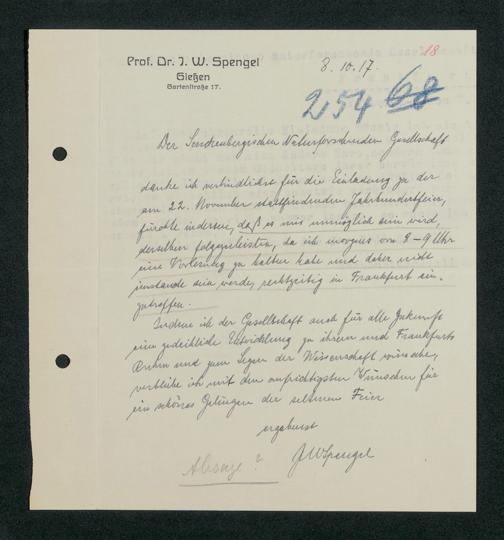 18
Prof. Dr. J. W. Spengel
Gießen
Gartenstraße 17.
8.10.17.
254 68
Der Senckenbergischen Naturforschenden Gesellschaft
danke ich verbindlichst für die Einladung zu der
am 22. November stattfindenden Jahrhundertfeier,
fürchte indessen, daß es mir unmöglich sein wird,
derselben folgezuleisten, da ich morgens von 8-9 Uhr
eine Vorlesung zu halten habe und daher nicht
imstande sein werde, rechtzeitig in Frankfurt ein-
zutreffen.
Indem ich der Gesellschaft auch für alle Zukunft
eine gedeihliche Entwicklung zu ihrem und Frankfurts
Ruhm und zum Segen der Wissenschaft wünsche,
verbleibe ich mit den aufrichtigsten Wünschen für
ein schönes Gelingen der seltenen Feier
ergebenst
JWSpengel
Absage?